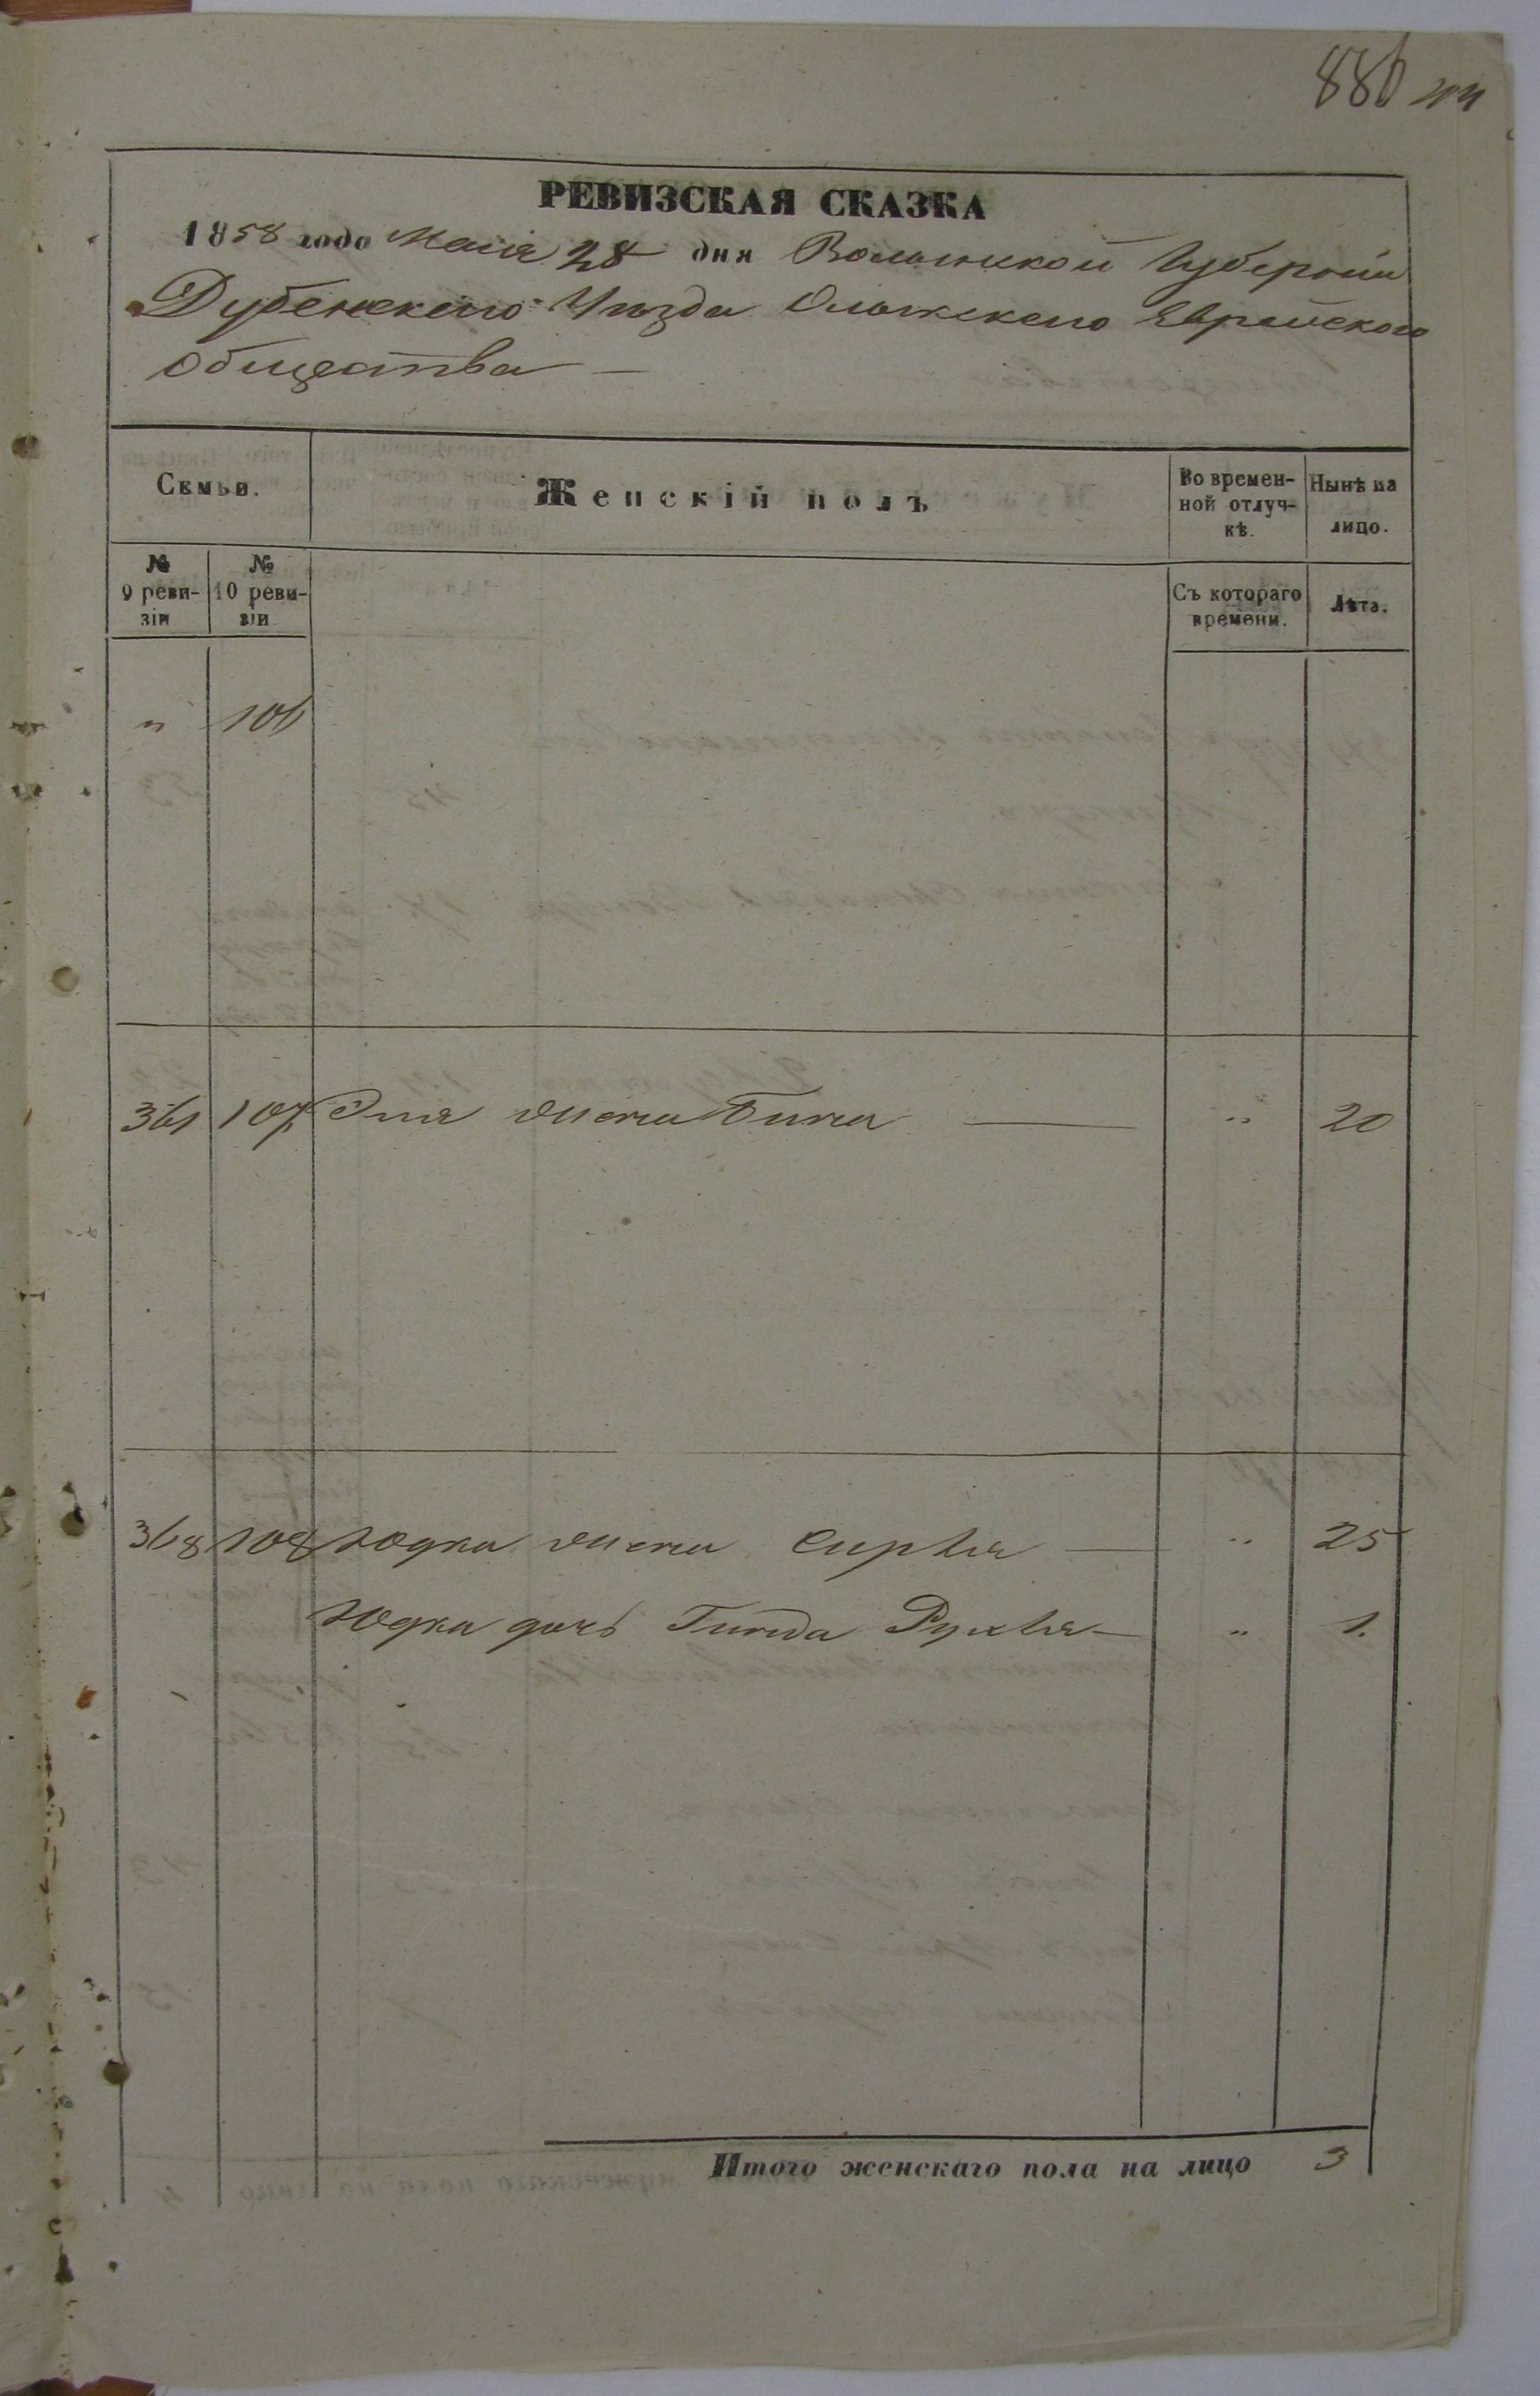 886
РЕВИЗСКАЯ СКАЗКА
1858 года Маія 28 дня Волынской Губерніи
Дубенскаго Уѣзда Олыкскаго Еврейскаго
Общества —
Семьи.
Женскій полъ
Во времен-
ной отлуч-
кѣ.
Нынѣ на
лицо.
№
9 реви-
зіи
№
10 реви-
зіи
Съ котораго
времени.
Лѣта.
" 106
361 107 Эля жена Бина — " 20
368 108 Юдка жена Сирля — " 25
Юдки дочь Гинда Рухля — " 1.
Итого женскаго пола на лицо 3